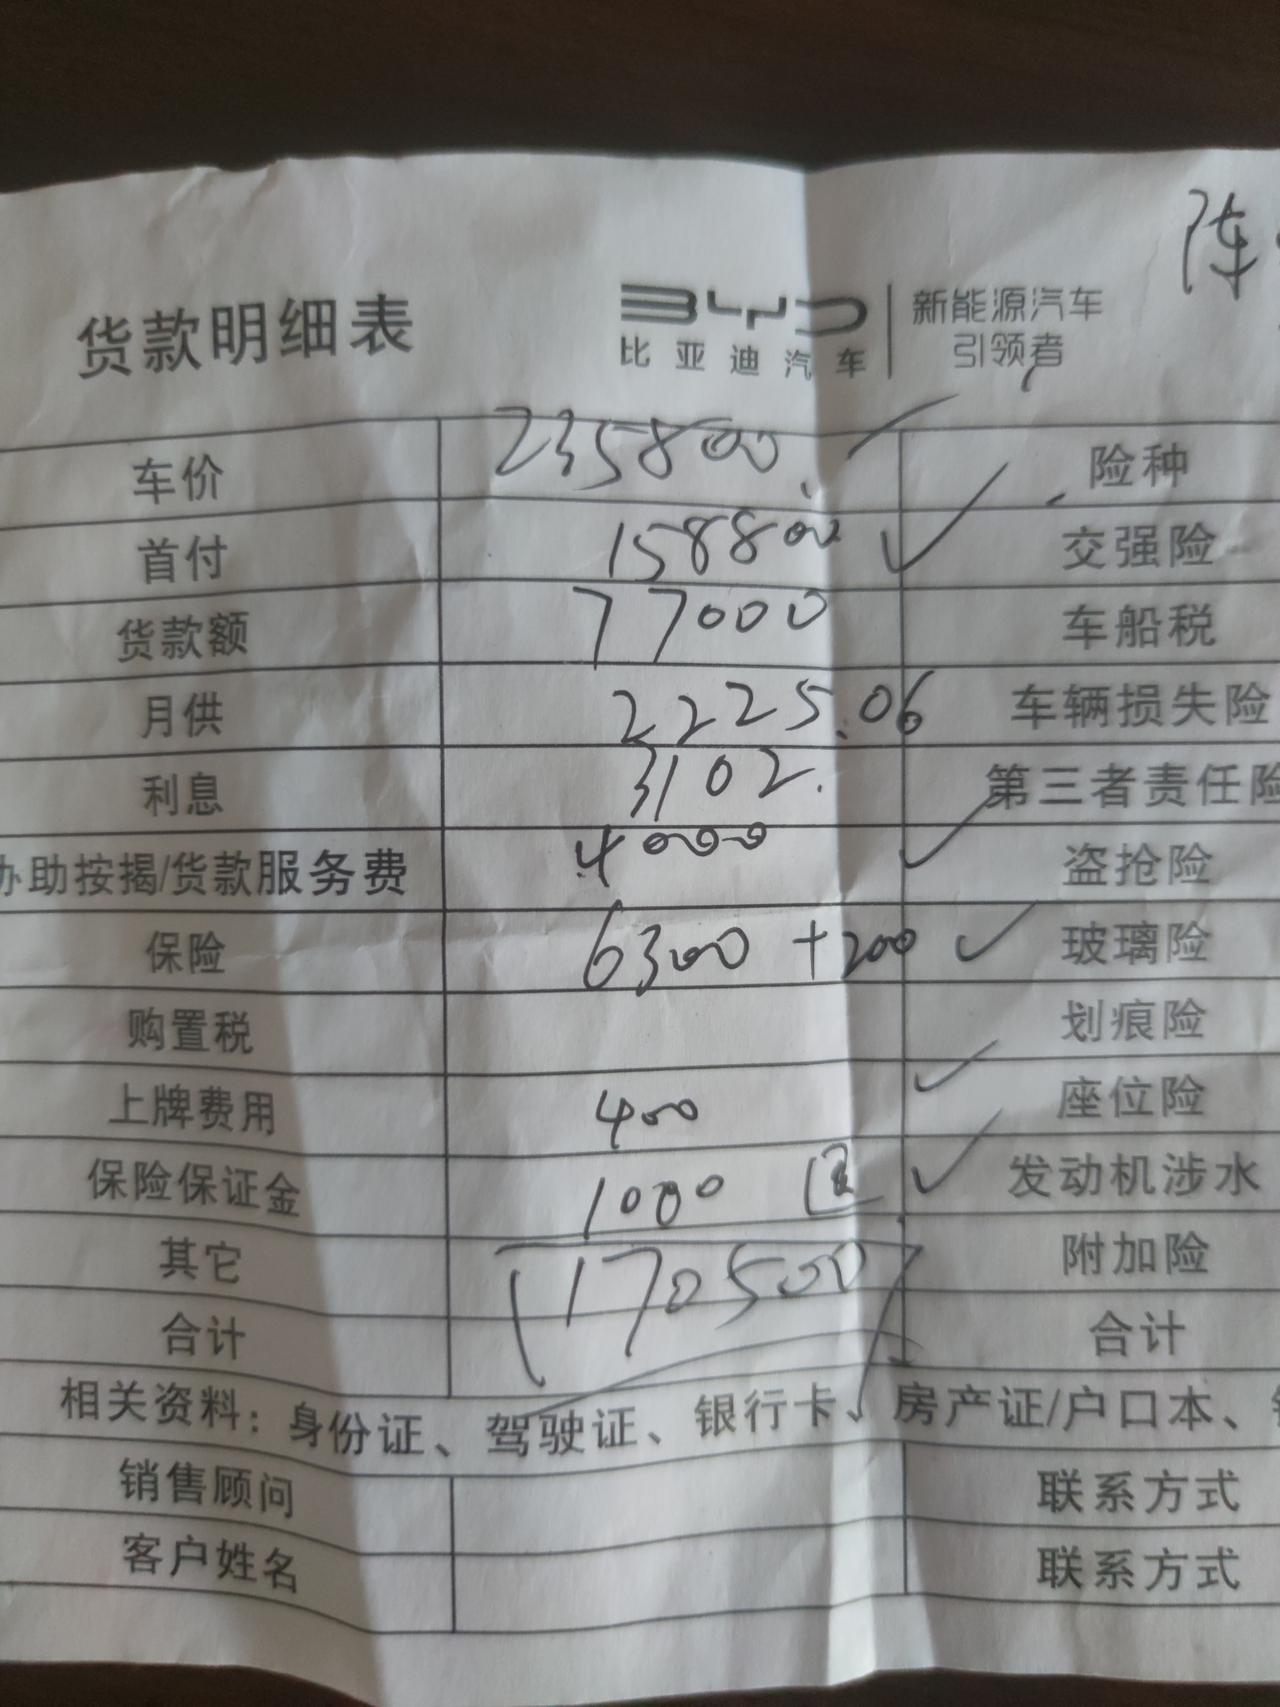 陈
货款明细表 BYD 比亚迪汽车 新能源汽车引领者
车价 235800. 险种
首付 158800 交强险
货款额 77000 车船税
月供 2225.06 车辆损失险
利息 3102. 第三者责任险
协助按揭/货款服务费 4000 盗抢险
保险 6300 +200 玻璃险
购置税 划痕险
上牌费用 400 座位险
保险保证金 1000 发动机涉水
其它 170500 附加险
合计 合计
相关资料：身份证、驾驶证、银行卡、房产证/户口本、
销售顾问 联系方式
客户姓名 联系方式